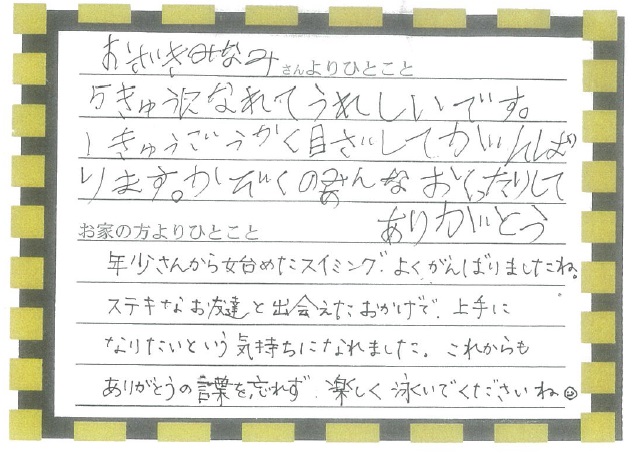 おざきみなみさんよりひとこと
5きゅうになれてうれしいです。
1きゅうごうかく目ざしてがんば
ります。かぞくのみんなおくったりして
ありがとう
お家の方よりひとこと
年少さんから始めたスイミング、よくがんばりましたね。
ステキなお友達と出会えたおかげで、上手に
なりたいという気持ちになれました。これからも
ありがとうの言葉を忘れず、楽しく泳いでくださいね☺